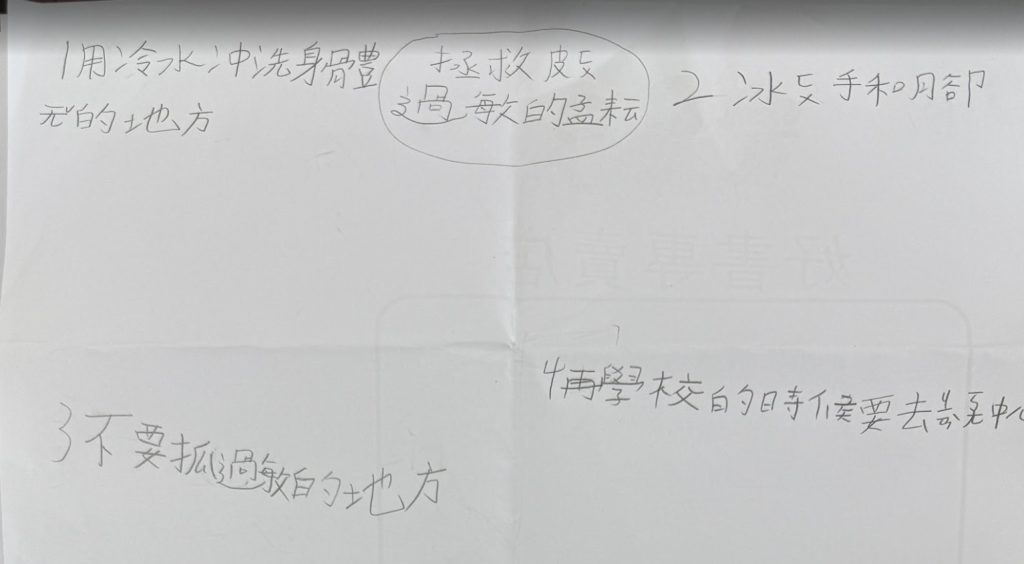 1用冷水冲洗身體
的地方
拯救皮
過敏的孟耘
2冰手和脚
4再學校的時候要去健康中心
3不要抓過敏的地方
好書專賣店